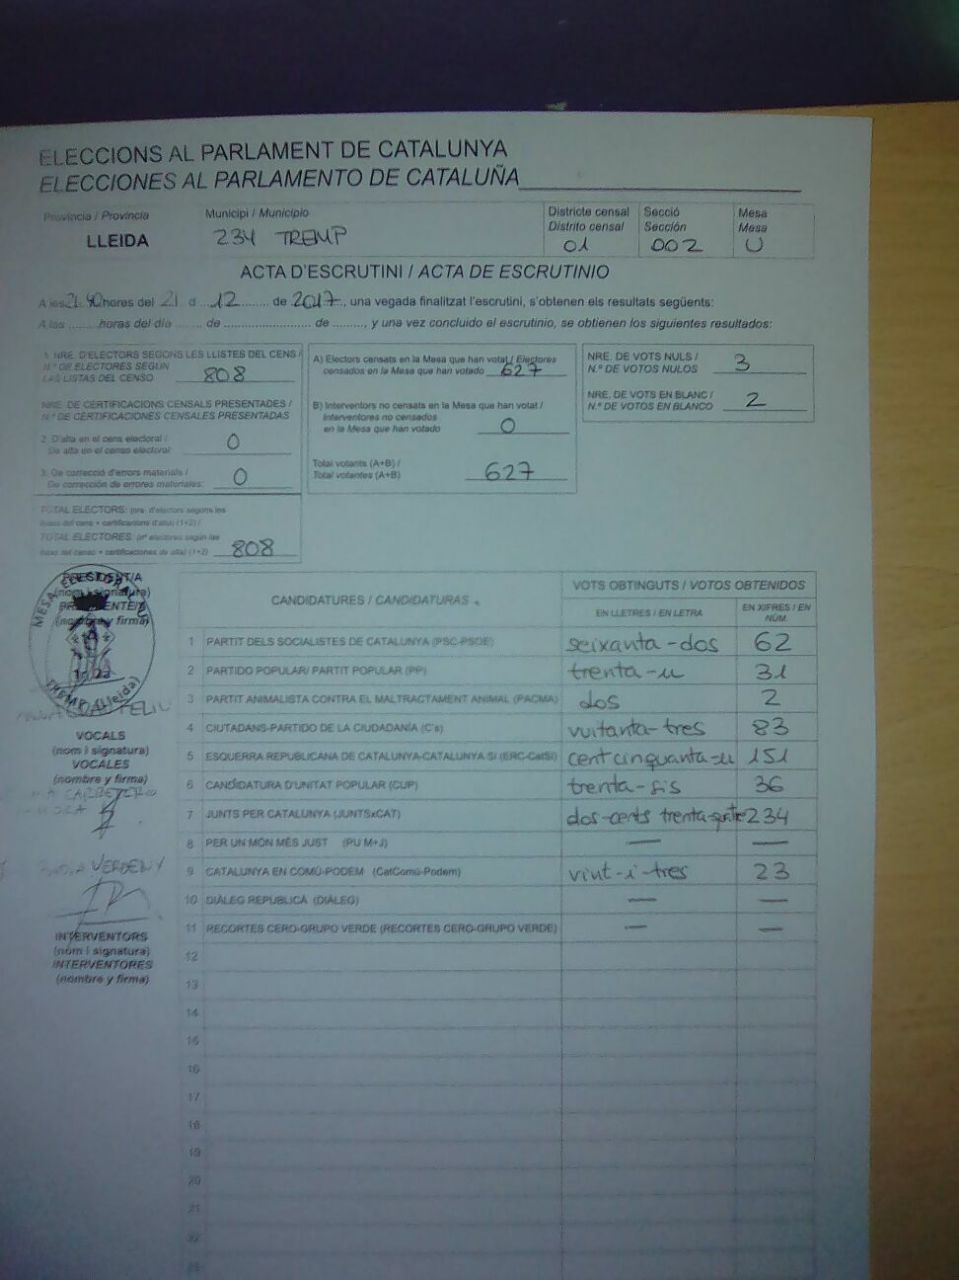 ELECCIONS AL PARLAMENT DE CATALUNYA
ELECCIONES AL PARLAMENTO DE CATALUÑA
Província / Provincia
LLEIDA
Municipi / Municipio
234 TREMP
Districte censal
Distrito censal
01
Secció
Sección
002
Mesa
Mesa
U
ACTA D'ESCRUTINI / ACTA DE ESCRUTINIO
A les 21:40 hores del 21 d 12 de 2017, una vegada finalitzat l'escrutini, s'obtenen els resultats següents:
A las ........ horas del día ....... de ........................ de ........, y una vez concluido el escrutinio, se obtienen los siguientes resultados:
1. NRE. D'ELECTORS SEGONS LES LLISTES DEL CENS /
N.º DE ELECTORES SEGÚN
LAS LISTAS DEL CENSO 808
NRE. DE CERTIFICACIONS CENSALS PRESENTADES /
N.º DE CERTIFICACIONES CENSALES PRESENTADAS
2. D'alta en el cens electoral /
De alta en el censo electoral: 0
3. De correcció d'errors materials /
De corrección de errores materiales: 0
TOTAL ELECTORS: (nre. d'electors segons les
llistes del cens + certificacions d'alta) (1+2) /
TOTAL ELECTORES: (nº electores según las
listas del censo + certificaciones de alta) (1+2) 808
A) Electors censats en la Mesa que han votat / Electores
censados en la Mesa que han votado 627
B) Interventors no censats en la Mesa que han votat /
Interventores no censados
en la Mesa que han votado 0
Total votants (A+B) /
Total votantes (A+B) 627
NRE. DE VOTS NULS /
N.º DE VOTOS NULOS 3
NRE. DE VOTS EN BLANC /
N.º DE VOTOS EN BLANCO 2
PRESIDENT/A
(nom i signatura)
PRESIDENTE/A
(nombre y firma)
MESA ELECTORAL U
TREMP (Lleida)
FELIU
VOCALS
(nom i signatura)
VOCALES
(nombre y firma)
CARRETERO
MORA
VERDENY
INTERVENTORS
(nom i signatura)
INTERVENTORES
(nombre y firma)
CANDIDATURES / CANDIDATURAS
VOTS OBTINGUTS / VOTOS OBTENIDOS
EN LLETRES / EN LETRA
EN XIFRES / EN NÚM.
1 PARTIT DELS SOCIALISTES DE CATALUNYA (PSC-PSOE) seixanta-dos 62
2 PARTIDO POPULAR/ PARTIT POPULAR (PP) trenta-u 31
3 PARTIT ANIMALISTA CONTRA EL MALTRACTAMENT ANIMAL (PACMA) dos 2
4 CIUTADANS-PARTIDO DE LA CIUDADANÍA (C's) vuitanta-tres 83
5 ESQUERRA REPUBLICANA DE CATALUNYA-CATALUNYA SÍ (ERC-CatSí) cent cinquanta-u 151
6 CANDIDATURA D'UNITAT POPULAR (CUP) trenta-sis 36
7 JUNTS PER CATALUNYA (JUNTSxCAT) dos-cents trenta-quatre 234
8 PER UN MÓN MÉS JUST (PUM+J) — —
9 CATALUNYA EN COMÚ-PODEM (CatComú-Podem) vint-i-tres 23
10 DIÀLEG REPUBLICÀ (DIÀLEG) — —
11 RECORTES CERO-GRUPO VERDE (RECORTES CERO-GRUPO VERDE) — —
12
13
14
15
16
17
18
19
20
21
22
23